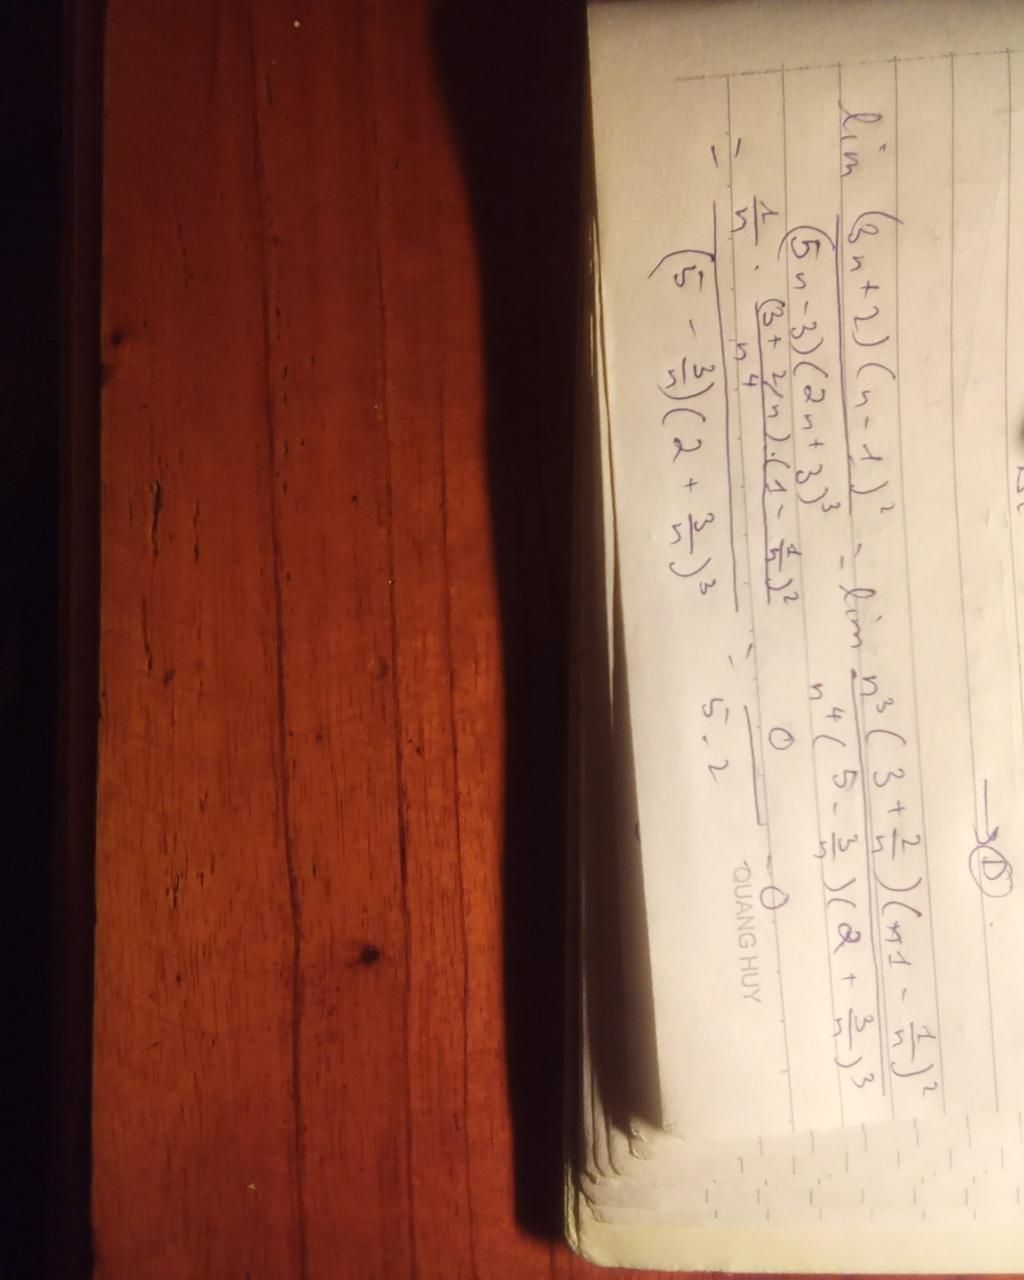 → Ⓓ.
lim (3n+2)(n-1)² / (5n-3)(2n+3)³ = lim n³(3+2/n)(1-1/n)² / n⁴(5-3/n)(2+3/n)³
= 1/n · (3+2/n).(1-1/n)² / (5-3/n)(2+3/n)³ = 0 / 5.2 = 0
QUANG HUY